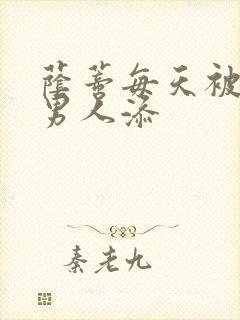 蔭蒂每天被
男人添
秦老九